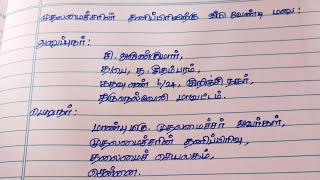 முதலமைச்சரின் தனிப்பிரிவுக்கு வீடு வேண்டி மனு:
அனுப்புநர்:
சி. அருண்குமார்,
த/பெ, த. சிதம்பரம்,
கதவு எண் 6/24, குறிஞ்சி நகர்,
திருநெல்வேலி மாவட்டம்.
பெறுநர்:
மாண்புமிகு முதலமைச்சர் அவர்கள்,
முதலமைச்சரின் தனிப்பிரிவு,
தலைமைச் செயலகம்,
சென்னை.